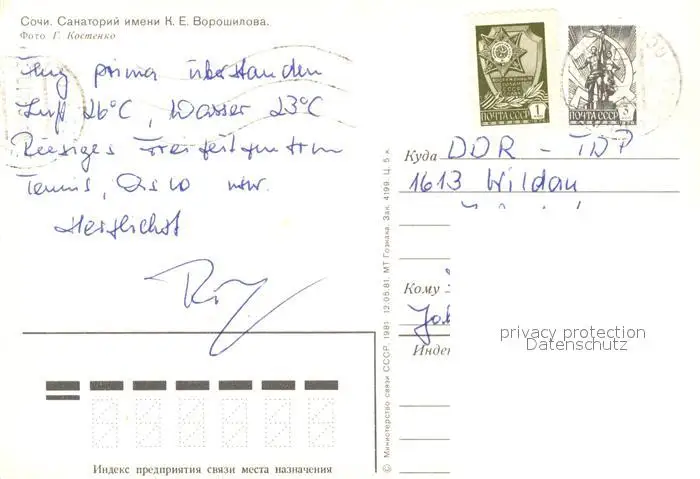 Сочи. Санаторий имени К. Е. Ворошилова.
Фото Г. Костенко
Flug prima überstanden
Luft 26°C, Wasser 23°C
Riesiges Freizeitzentrum
Tennis, usw.
Herzlichst
ПОЧТА СССР 1
ПОЧТА СССР 3
Куда DDR - TDP
1613 Wildau
Кому
Индек
privacy protection
Datenschutz
Индекс предприятия связи места назначения
© Министерство связи СССР, 1981 12.05.81. МТ Гознака. Зак. 4199. Ц. 5 к.